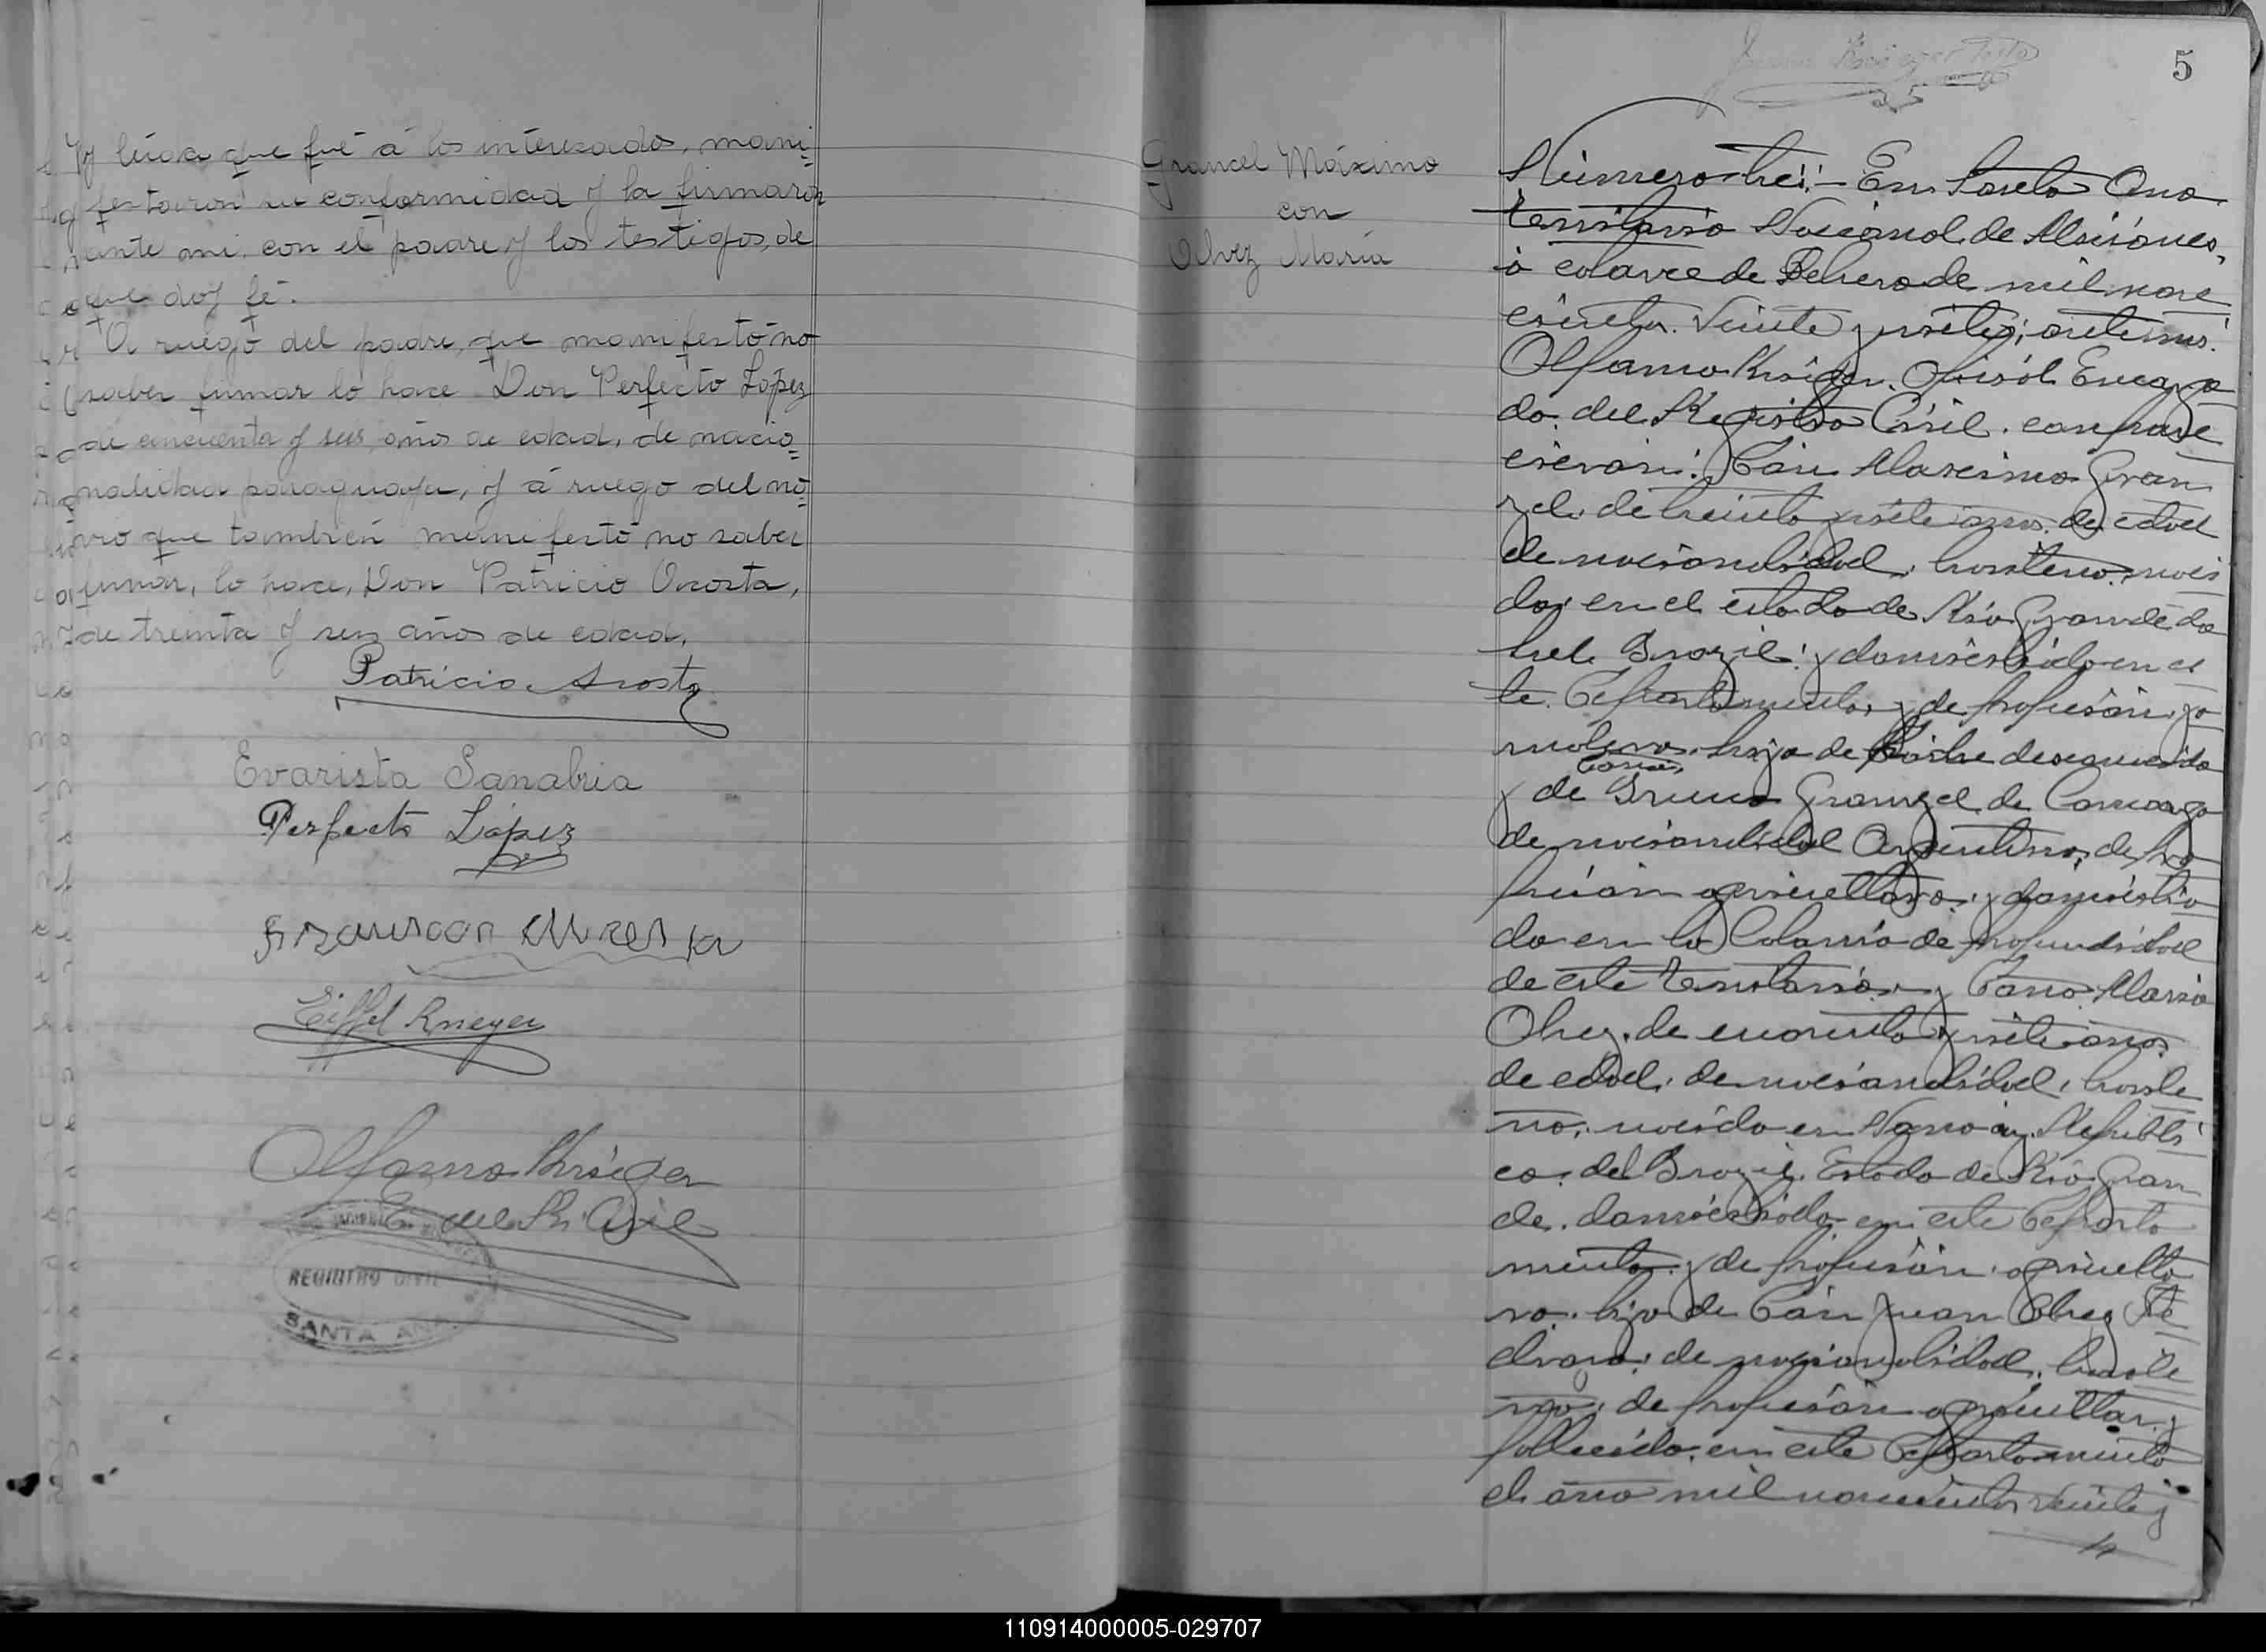 Y leída que fué á los interezados, mani=
festaron su conformidad y la firmaron
ante mi, con el padre y los testigos, de
que doy fé.
A ruego del padre, que manifestó no
saber firmar lo hace Don Perfecto López
de cincuenta y seis años de edad, de nacio=
nalidad paraguaya, y á ruego del no=
vio que también manifestó no saber
firmar, lo hace, Don Patricio Acosta,
de treinta y seis años de edad.
Patricio Acosta
Evarista Sanabria
Perfecto López
Eiffel Krieger
Alfonso Krieger
E. del R. Civil
REGISTRO CIVIL
SANTA ANA
5
Grancel Máximo
con
Olvez María
Número tres: En Santa Ana
territorio Nacional de Misiones,
à catorce de Febrero de mil nove
cientos veinte y siete; ante mi:
Alfonso Krieger. Oficial Encarga
do del Registro Civil. compare
cieron: Don Maximo Gran
zel de treinta y siete años de edad
de nacionalidad brasilero naci
do en el estado de Rio Grande do
Sul Brazil: y domiciliado en es
te Departamento, y de profesión jor
nalero hijo de Padre desconocido
y de Bruna Granzel de Camargo
de nacionalidad Argentina, de pro
fesión agricultora y domicilia
da en la Colonia de Profundidad
de este territorio y Doña Maria
Olvez de cuarenta y siete años
de edad, de nacionalidad brasile
na, nacida en Republi
ca del Brazil. Estado de Rio Gran
de, domiciliada en este Departa
mento y de profesión agriculto
ra hija de Don Juan Olvez
de nacionalidad brasile
no, de profesión agricultor y
fallecido en este Departamento
el año mil novecientos veinte y
110914000005-029707